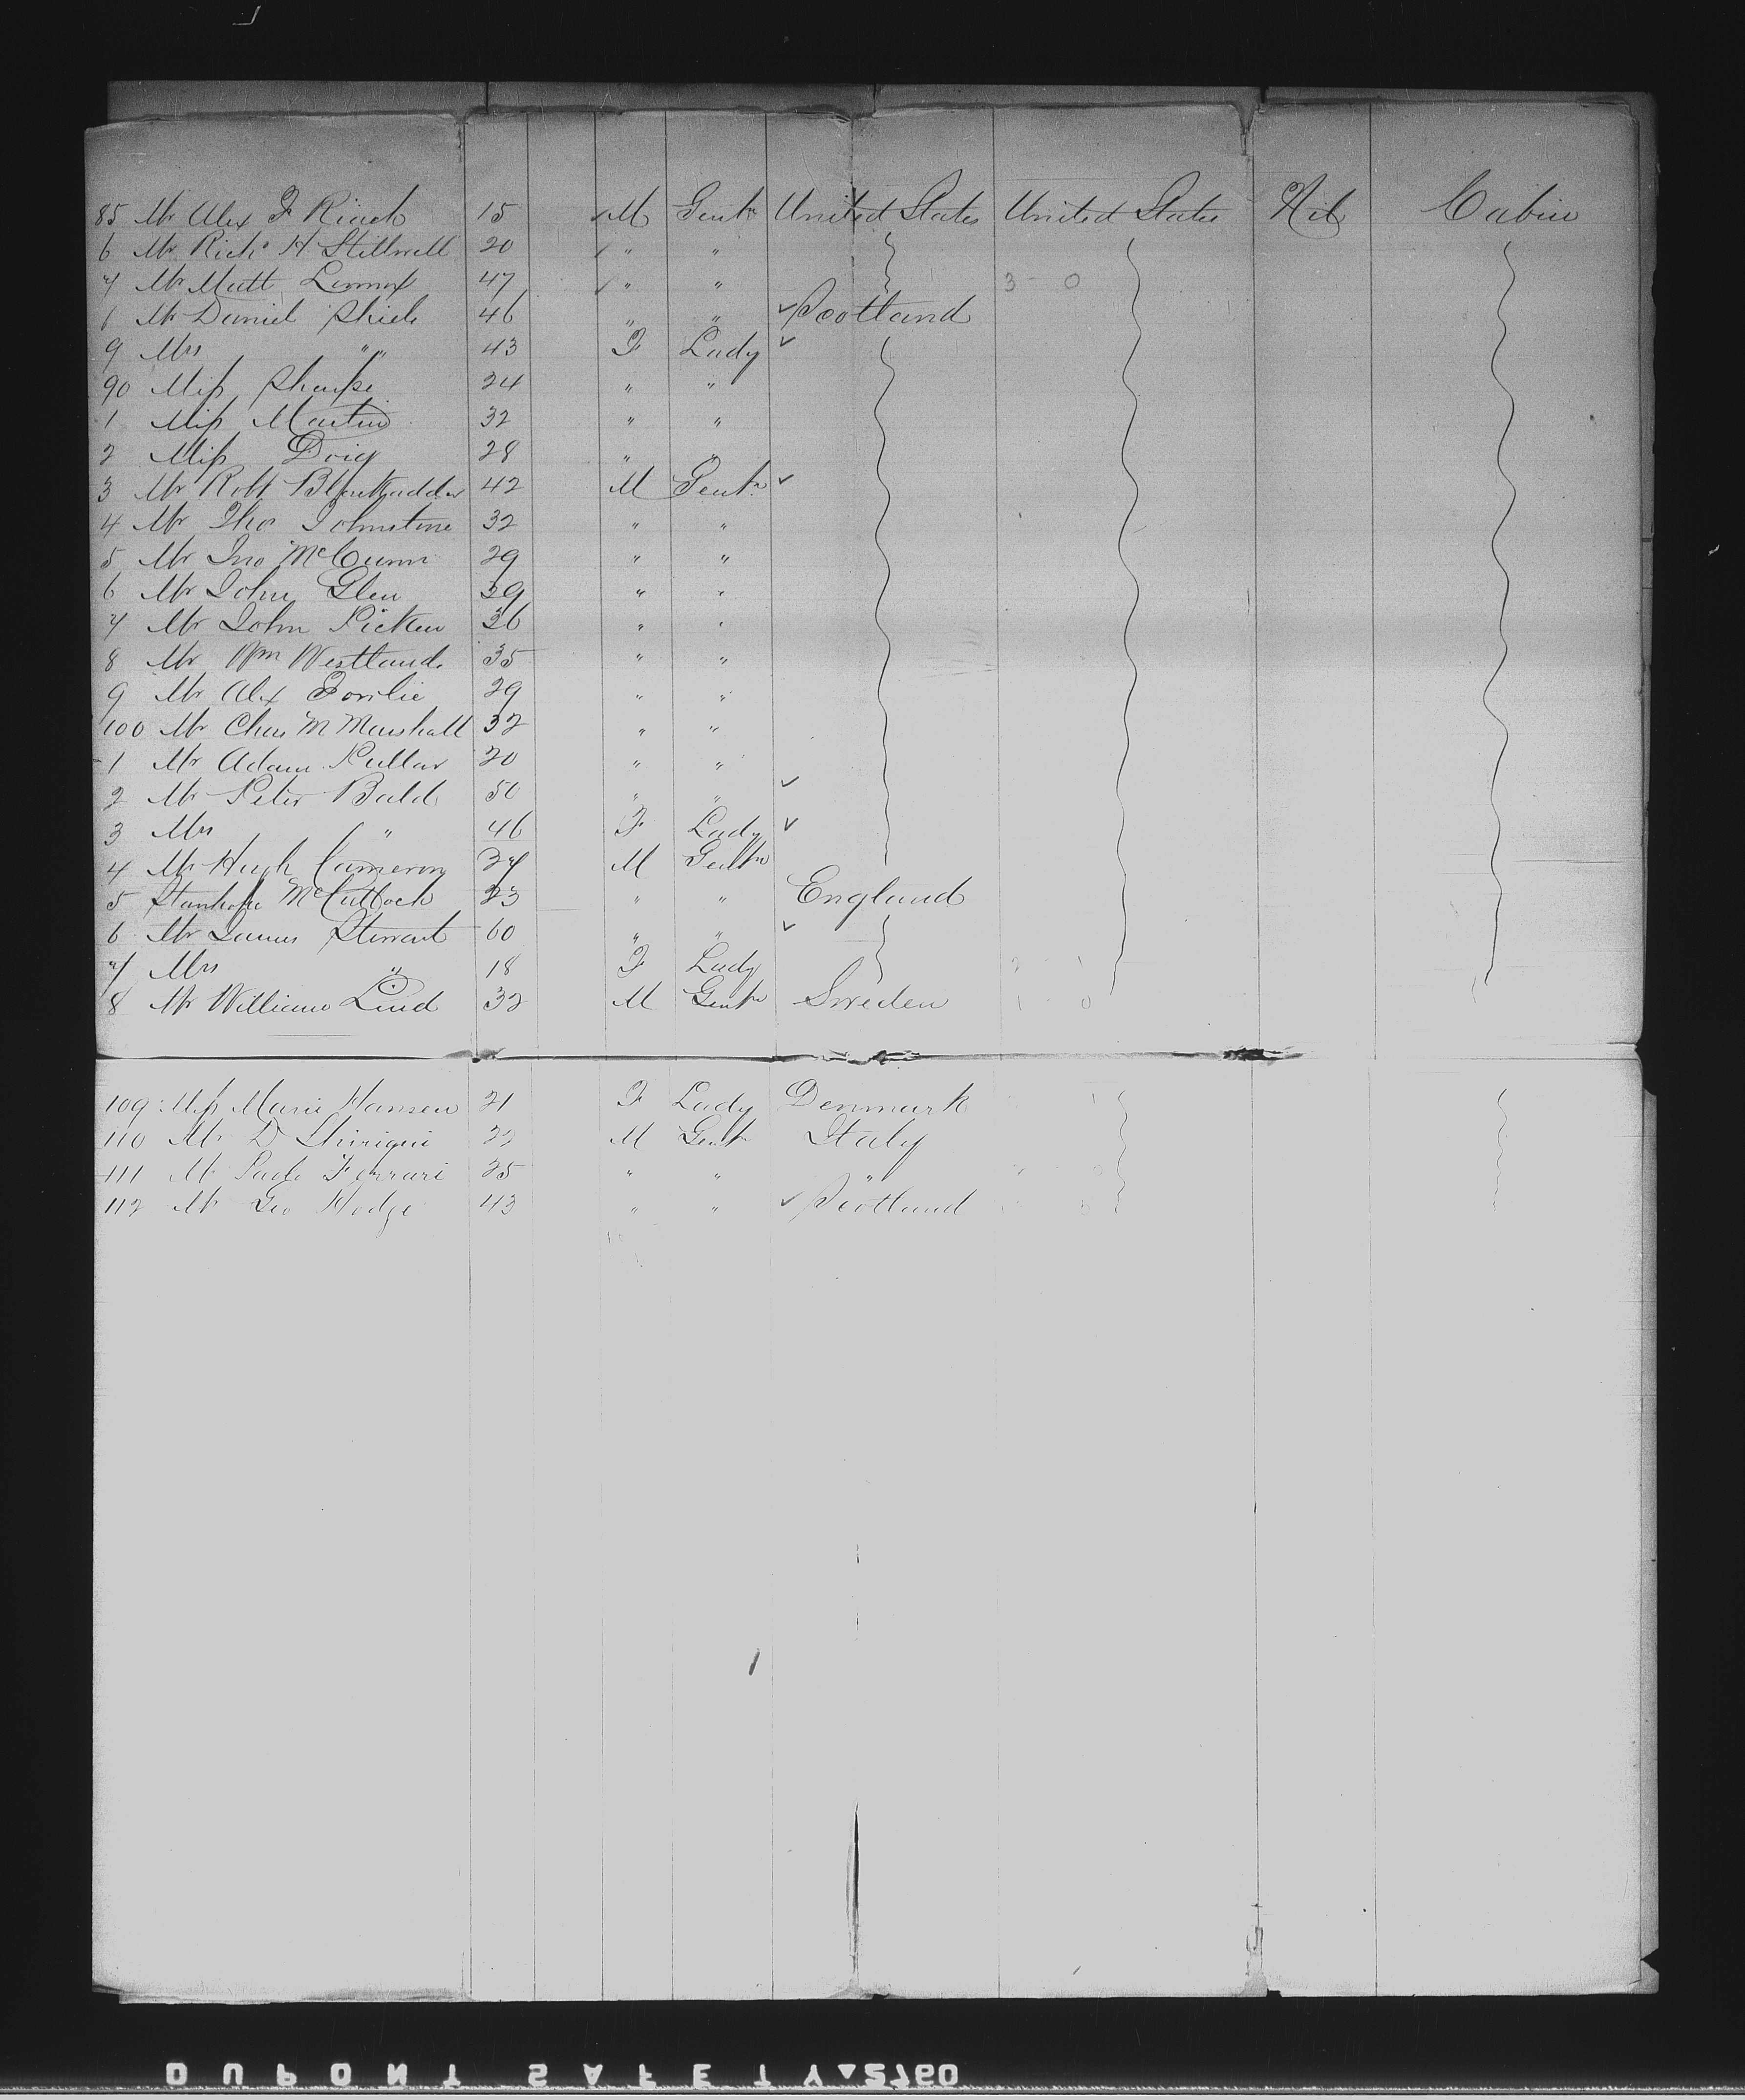 85 Mr Alex F Riach 15 M Gentn United States United States Nil Cabin
6 Mr Richd H Stillwell 20 " "
7 Mr Matt Lennox 47 " " 3 - 0
8 Mr Daniel Shiels 46 " " Scotland
9 Mrs " " 43 F Lady
90 Miss Sharpe 24 " "
1 Miss Martin 32 " "
2 Miss Doig 28 " "
3 Mr Robt Blackadder 42 M Gentn
4 Mr Thos Johnstone 32 " "
5 Mr Jno McCunn 29 " "
6 Mr John Glen 39 " "
7 Mr John Picken 36 " "
8 Mr Wm Westland 35 " "
9 Mr Alex 29 " "
100 Mr Chas M Marshall 32 " "
1 Mr Adam Pullar 20 " "
2 Mr Peter Bald 50 " "
3 Mrs " 46 F Lady
4 Mr Hugh Cameron 27 M Gentn
5 Stanhope McCullock 23 " " England
6 Mr James Stewart 60 " "
7 Mrs " 18 F Lady
8 Mr William Lind 32 M Gentn Sweden 1 0
109 Miss Marie Hansen 21 F Lady Denmark 1
110 Mr D 22 M Gentn Italy
111 Mr Paolo Ferrari 25 " " "
112 Mr Geo Hodge 43 " " Scotland
DUPONT SAFETY 2760